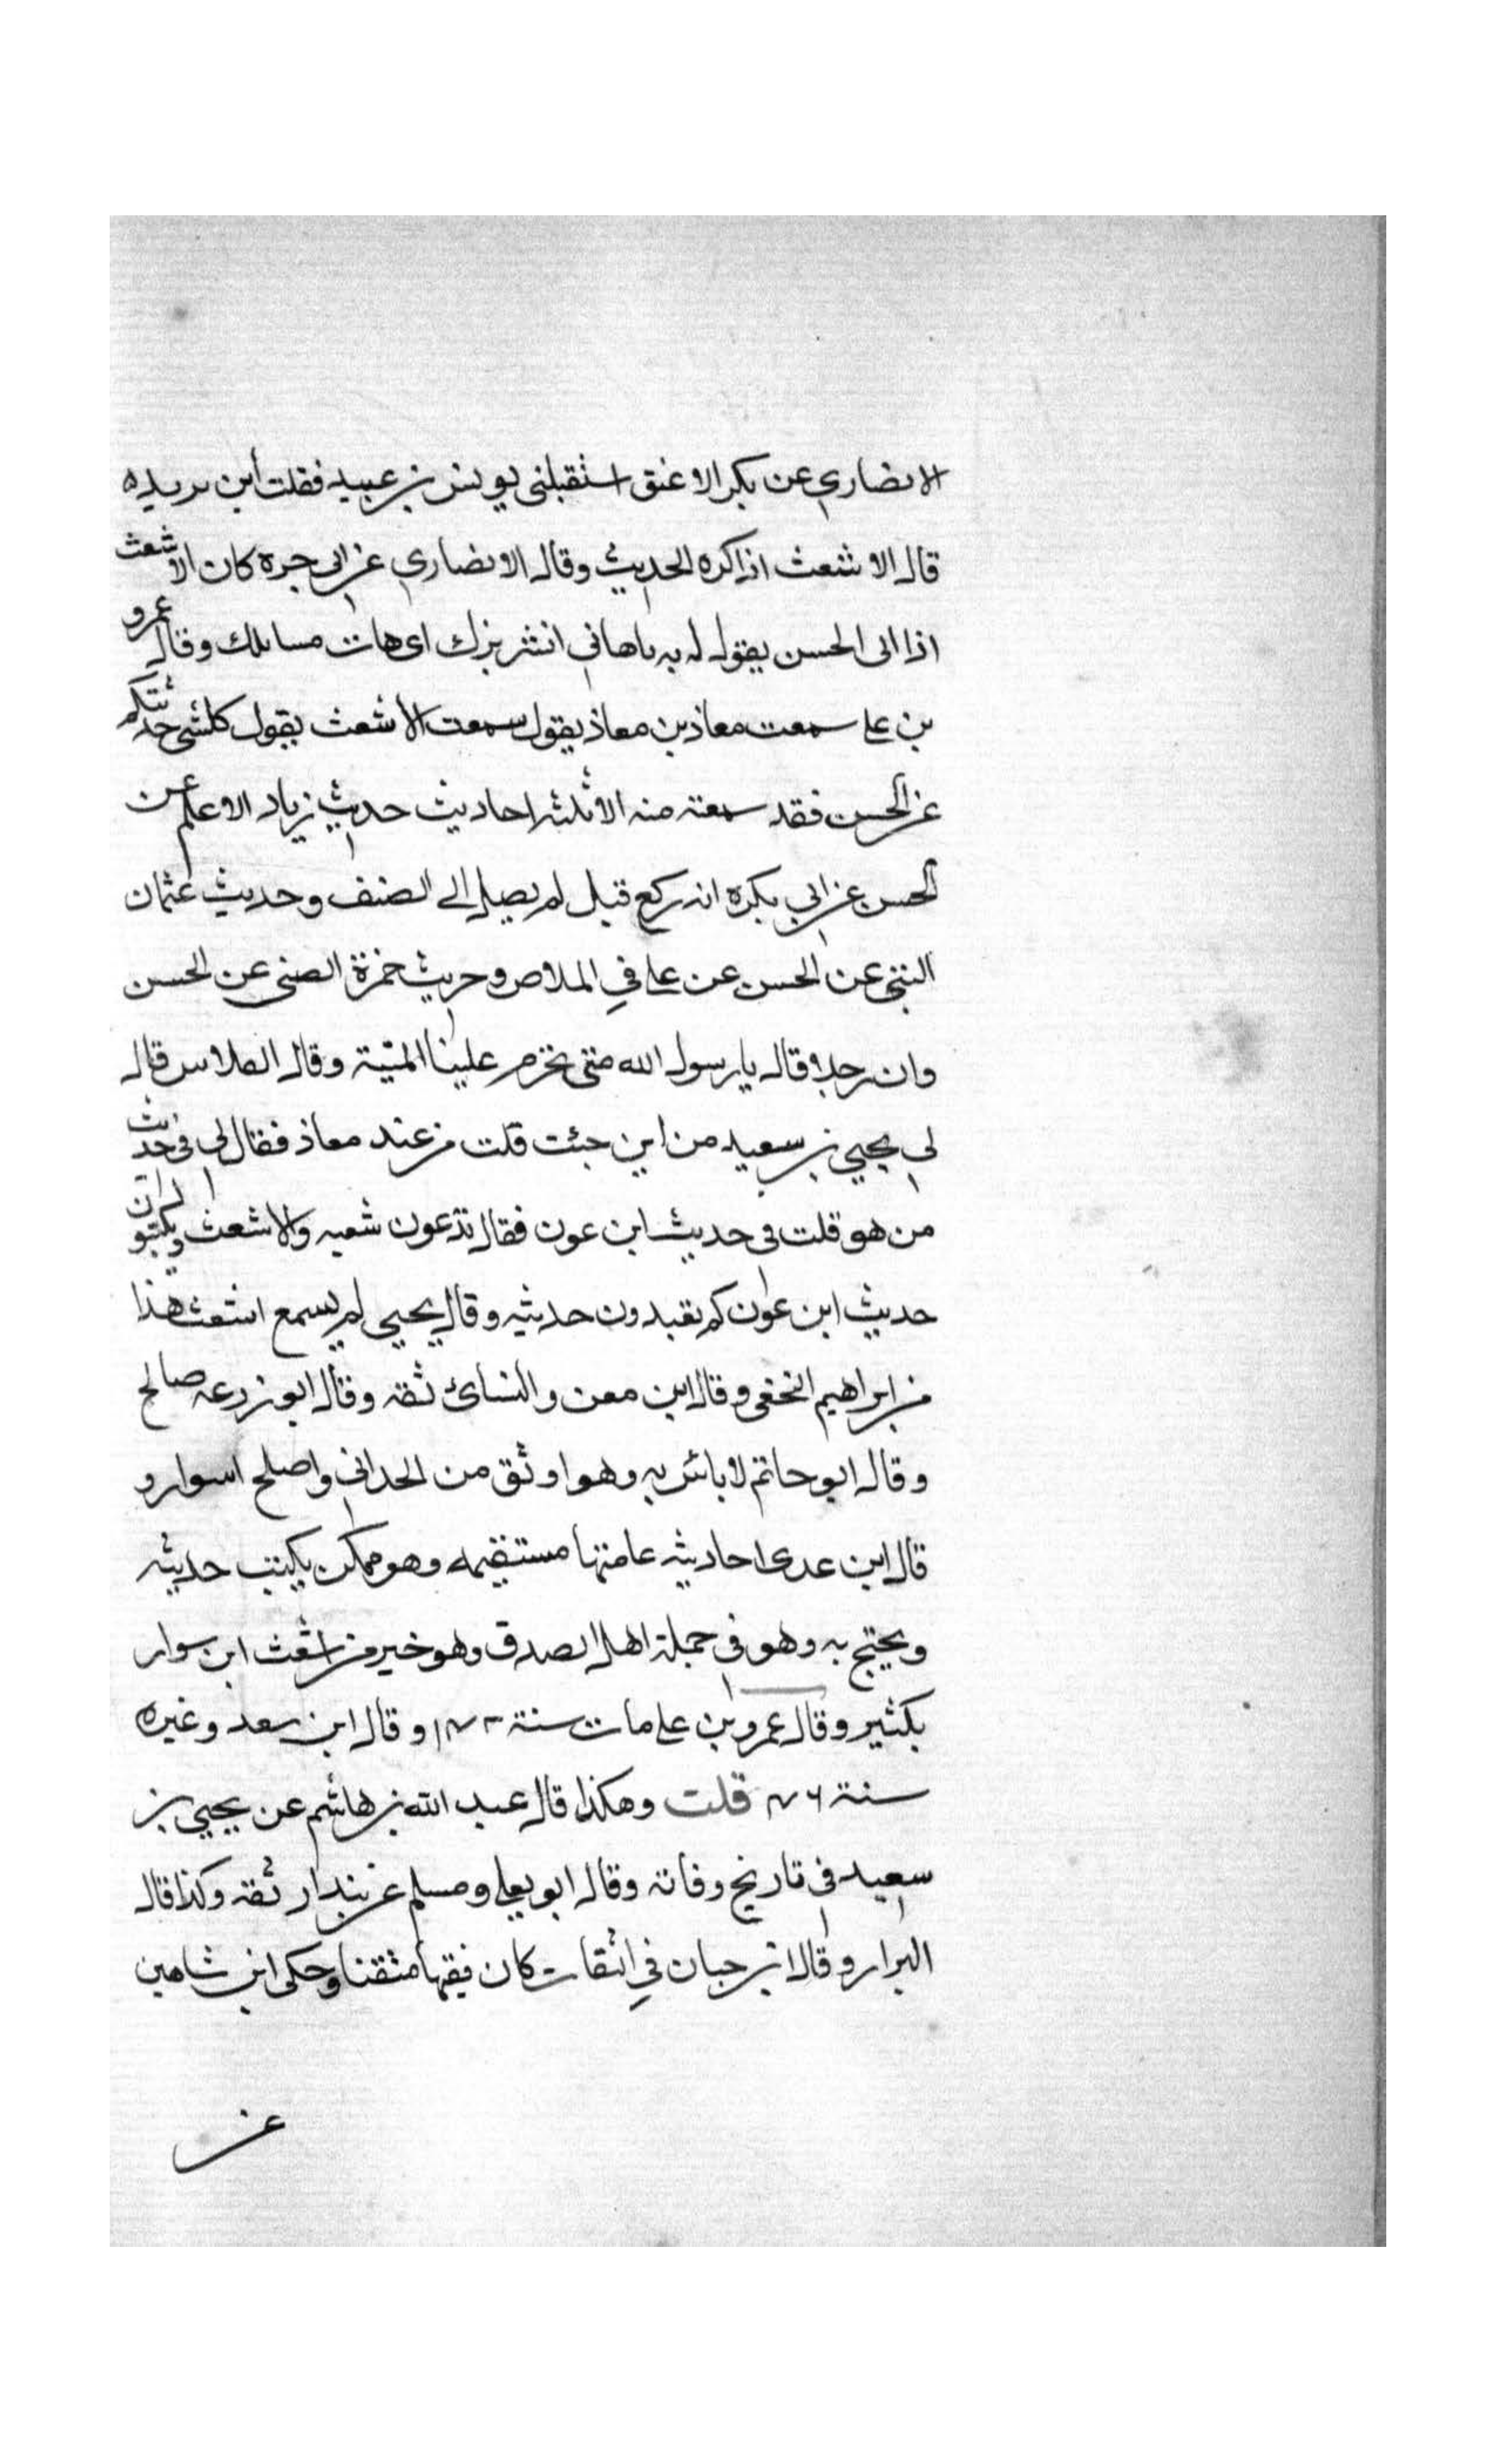 الانصاري عن بكر الاعنق استقبلني يونس بن عبيد فقلت أين يريده
قال الاشعث اذاكره الحديث وقال الانصاري عن ابي حره كان الاشعث
اذا الى الحسن يقول له يه ياهاني انشر بزك اى هات مسايلك وقال عمرو
بن علي سمعت معاذ بن معاذ يقول سمعت الاشعث يقول كلشي حدثتكم
عن الحسن فقد سمعته منه الاثلثه احاديث حديث زياد الاعلم عن
الحسن عن ابي بكره انه ركع قبل لم يصل الى الصف وحديث عثمان
البتي عن الحسن عن علي في الملاص وحريث حمزة الضبي عن الحسن
وان رجلا قال يا رسول الله متى تحرم علينا الميتة وقال الفلاس قال
لي يحيي بن سعيد من اين جئت قلت من عند معاذ فقال لي في حديث
من هو قلت في حديث ابن عون فقال تدعون شعبه والاشعث وتكتبون
حديث ابن عون كم تعيدون حديثه وقال يحيي لم يسمع اشعث هذا
من ابراهيم النخعي وقال ابن معن والنسائ ثقه وقال ابو زرعه صالح
وقال ابو حاتم لا بائس به وهو اوثق من الحداني واصلح اسوار و
قال ابن عدى احاديثه عامتها مستقيمه وهو ممكن يكتب حديثه
ويحتج به وهو في جملة اهل الصدق وهو خير من اشعث ابن سوار
بكثير وقال عمرو بن علي مات سنة وقال ابن سعد وغيره
سنة قلت وهكذا قال عبد الله بن هاشم عن يحيي بن
سعيد في تاريخ وفاته وقال ابو يعلي ومسلم عن بندار ثقه وكذا قال
البزار وقال ابن حبان في الثقات كان فقيها متقنا وحكى ابن شاهين
عن